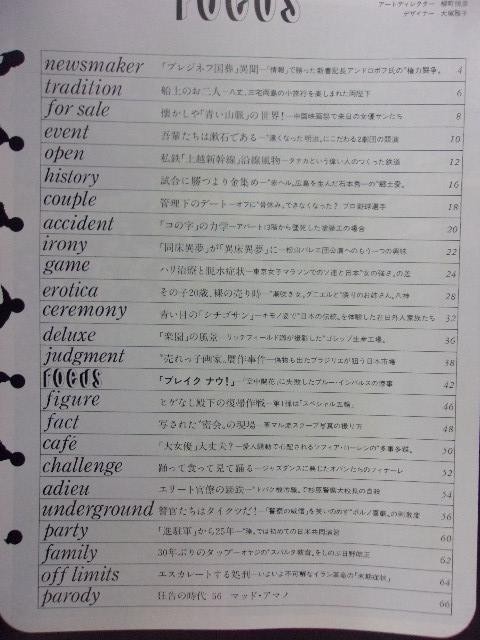 FOCUS
アートディレクター 柳町恒彦
デザイナー 大塚雅子
newsmaker 「ブレジネフ国葬」異聞―「情報」で勝った新書記長アンドロポフ氏の"権力闘争" 4
tradition 船上のお二人―八丈、三宅両島の小旅行を楽しまれた両陛下 6
for sale 懐かしや「青い山脈」の世界!―中国映画祭で来日の女優サンたち 8
event 吾輩たちは漱石である―"遠くなった明治"にこだわる2劇団の競演 10
open 私鉄「上越新幹線」沿線風物―タナカという偉い人のつくった鉄道 12
history 試合に勝つより金集め―"赤ヘル"広島を生んだ石本秀一の"郷土愛" 16
couple 管理下のデート―オフに"骨休み"できなくなった?プロ野球選手 18
accident 「コの字」の力学―アパート13階から墜死した塗装工の場合 20
irony 「同床異夢」が「異床異夢」に―松山バレエ団公演へのもう一つの興味 22
game ハリ治療と脱水症状―東京女子マラソンでのソ連と日本"女の強さ"の差 24
erotica その子20歳、裸の売り時―"潮吹き女"ダニエルと"隣りのお姉さん"八神 28
ceremony 青い目の「シチゴサン」―キモノ姿で"日本の伝統"を体験した在日外人家族たち 32
deluxe 「楽園」の風景―リッチフィールド卿が撮影した"ゴシップ生産工場" 36
judgment "売れっ子画家"贋作事件―偽物も出たブラジリエが狙う日本市場 38
FOCUS 「ブレイク ナウ!」―"空中開花"に失敗したブルー・インパルスの惨事 42
figure ヒゲなし殿下の復帰作戦―第1弾は「スペシャル五輪」 46
fact 写された"密会"の現場―某マル派スクープ写真の撮り方 48
café 「大女優」大丈夫?―愛人騒動で心配されるソフィア・ローレンの"多事多難" 50
challenge 踊って食って見て踊る―ジャズダンスに興じたオバンたちのフィナーレ 52
adieu エリート官僚の蹉跌―"トバク機汚職"で杉原警察大校長の自殺 54
underground 警官たちはタイクツだ!―「警察の威信」を笑いのめす"ポルノ喜劇"の刺激度 56
party 「進駐軍」から25年―"陸"では初めての日米共同演習 60
family 30年ぶりのタップ―オヤジの"スパルタ教育"をしのぶ日野皓正 62
off limits エスカレートする処刑―いよいよ不可解なイラン革命の「末期症状」 64
parody 狂告の時代 56 マッド・アマノ 66